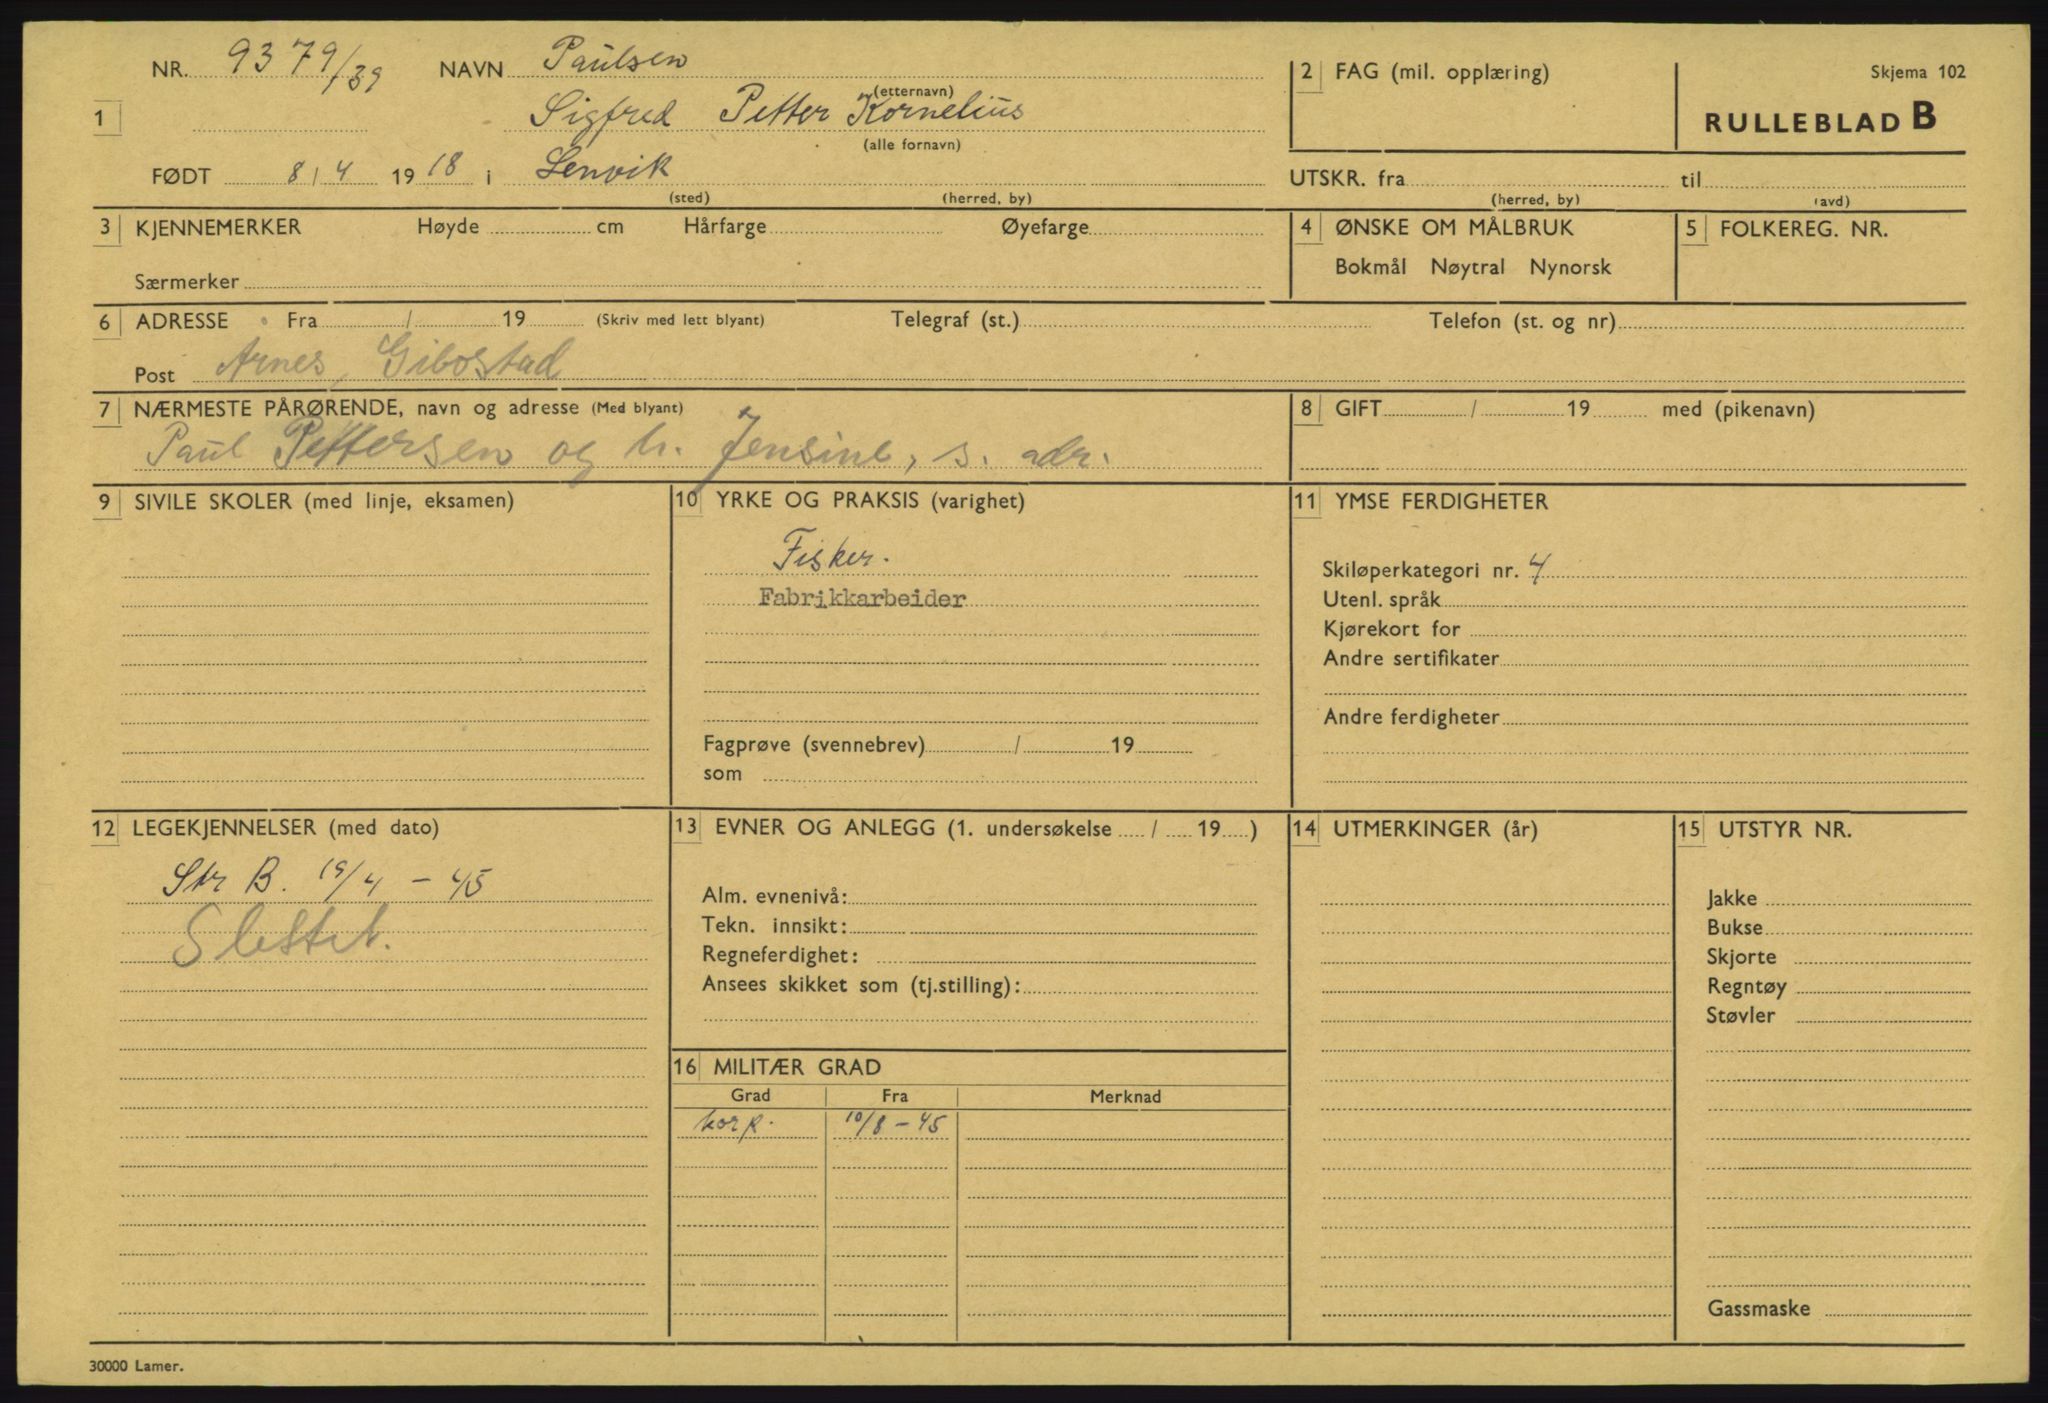 NR. 9379/39 NAVN Paulsen
(etternavn)
1 Sigfred Petter Kornelius
(alle fornavn)
FØDT 8/4 1918 i Lenvik
(sted) (herred, by)
2 FAG (mil. opplæring)
Skjema 102
RULLEBLAD B
UTSKR. fra til
(herred, by) (avd)
3 KJENNEMERKER Høyde cm Hårfarge Øyefarge
Særmerker
4 ØNSKE OM MÅLBRUK
Bokmål Nøytral Nynorsk
5 FOLKEREG. NR.
6 ADRESSE Fra / 19 (Skriv med lett blyant) Telegraf (st.) Telefon (st. og nr)
Post Arnes, Gibostad
7 NÆRMESTE PÅRØRENDE, navn og adresse (Med blyant)
Paul Pettersen og h. Jensine, s. adr.
8 GIFT / 19 med (pikenavn)
9 SIVILE SKOLER (med linje, eksamen)
10 YRKE OG PRAKSIS (varighet)
Fisker.
Fabrikkarbeider
Fagprøve (svennebrev) / 19
som
11 YMSE FERDIGHETER
Skiløperkategori nr. 4
Utenl. språk
Kjørekort for
Andre sertifikater
Andre ferdigheter
12 LEGEKJENNELSER (med dato)
Str B. 19/4 - 45
Slettet.
13 EVNER OG ANLEGG (1. undersøkelse / 19 )
Alm. evnenivå:
Tekn. innsikt:
Regneferdighet:
Ansees skikket som (tj.stilling):
14 UTMERKINGER (år)
15 UTSTYR NR.
Jakke
Bukse
Skjorte
Regntøy
Støvler
Gassmaske
16 MILITÆR GRAD
Grad Fra Merknad
korp. 10/8 - 45
30000 Lamer.